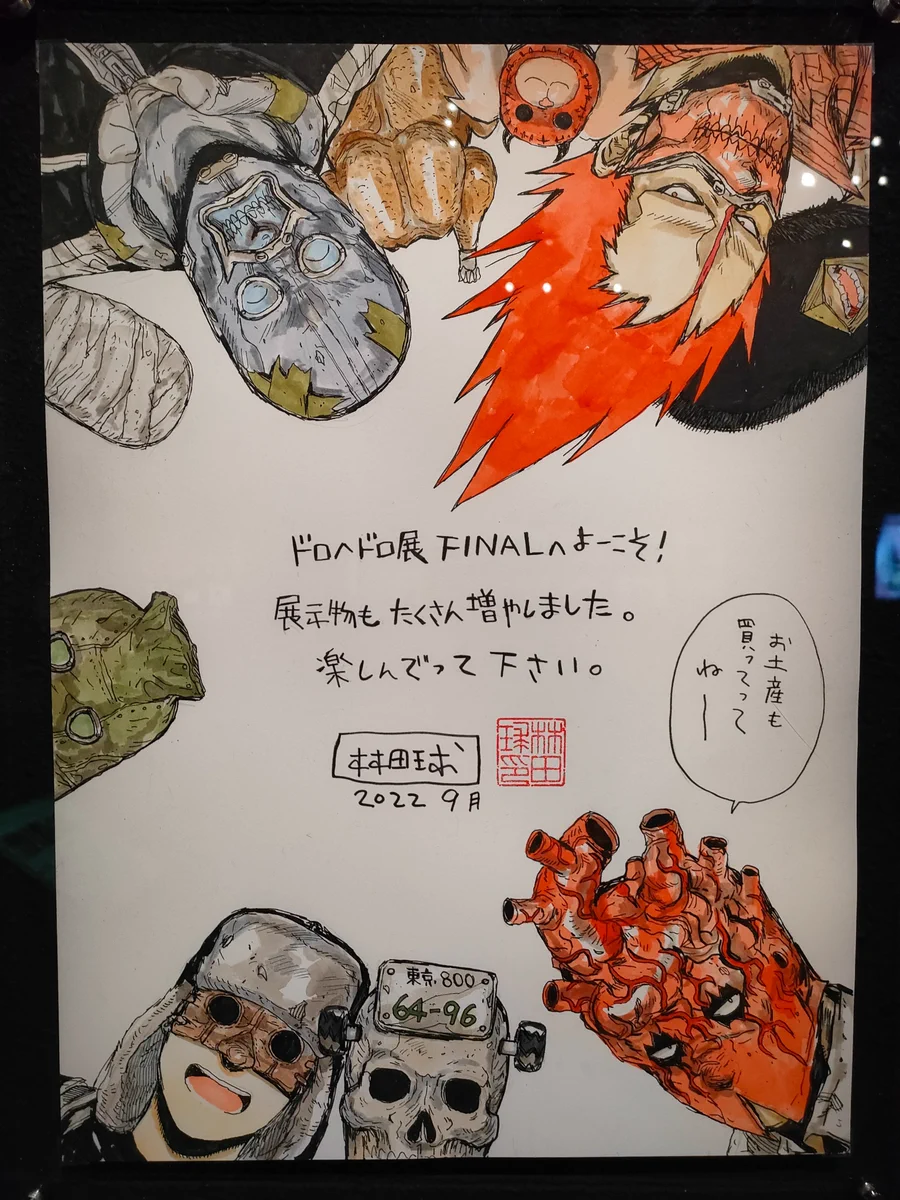 ドロヘドロ展 FINALへよーこそ!
展示物も たくさん増やしました。
楽しんでって 下さい。
お土産も
買ってって
ねー
林田球
2022 9月
林田
球印
東京 800
64-96